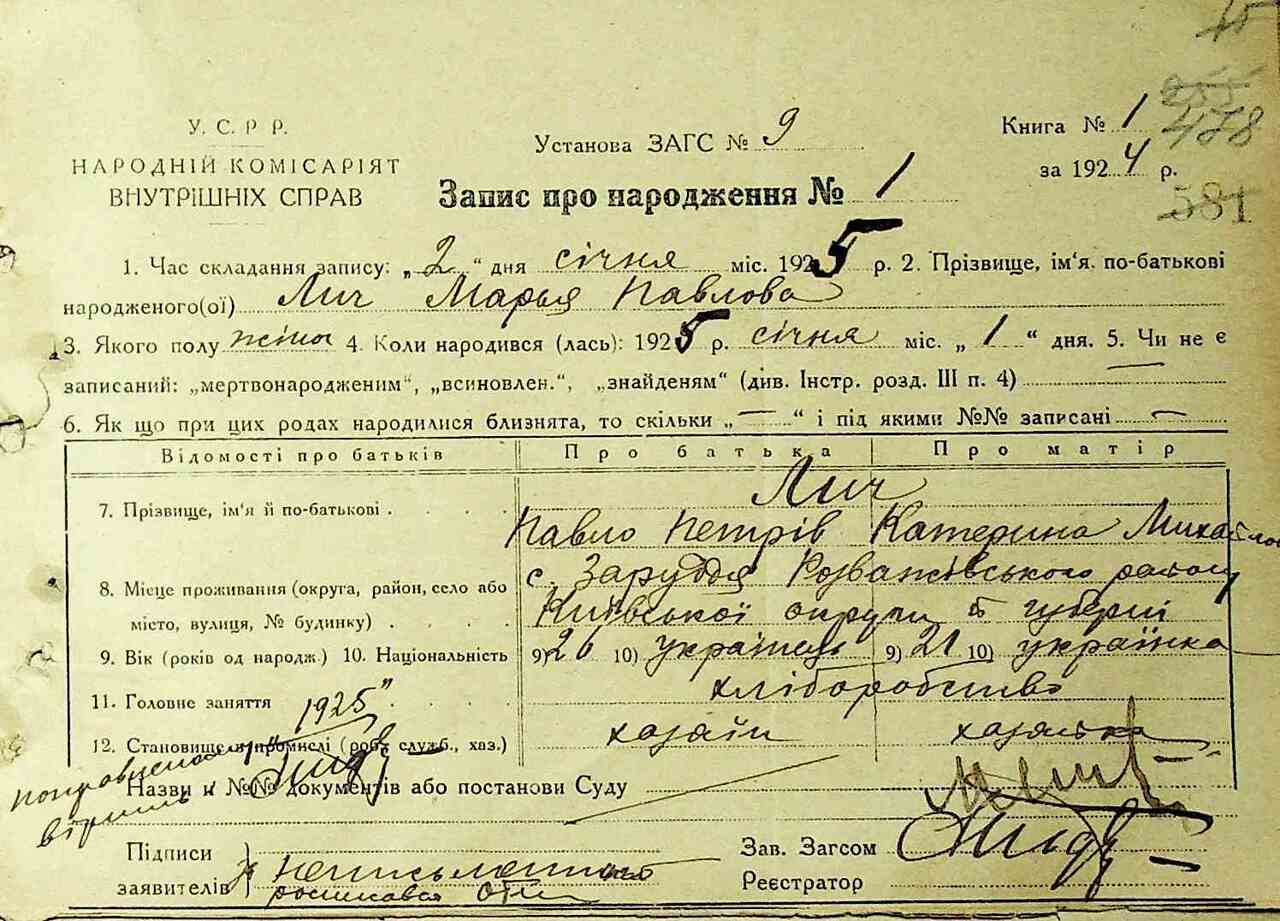 У. С. Р Р.
НАРОДНІЙ КОМІСАРІЯТ
ВНУТРІШНІХ СПРАВ
Установа ЗАГС № 9
Запис про народження № 1
Книга № 1
за 1924 р.
255
478
581
1. Час складання запису: „2“ дня січня міс. 1925 р. 2. Прізвище, ім'я. по-батькові
народженого(ої) Лич Марья Павлова
3. Якого полу жіно 4. Коли народився (лась): 1925 р. січня міс. „1“ дня. 5. Чи не є
записаний: „мертвонародженим“, „всиновлен.“, „знайденям“ (див. Інстр. розд. III п. 4) —
6. Як що при цих родах народилися близнята, то скільки „—“ і під якими №№ записані —
Відомості про батьків Про батька Про матір
Лич
7. Прізвище, ім'я й по-батькові . . . . Павло Петрів Катерина Михайлов
8. Місце проживання (округа, район, село або с. Заруддя Розважівського району
місто, вулиця, № будинку) . . . . Київської округи й губерні
9. Вік (років од народж.) 10. Національність 9) 26 10) українець 9) 21 10) українка
11. Головне заняття . . . . хліборобство
12. Становище в промислі (роб., служб., хаз.) хазяїн хазяйка
1925"
вірить
Назви и №№ документів або постанови Суду
Підписи
заявителів
Неписьменный
росписався
Зав. Загсом
Реєстратор